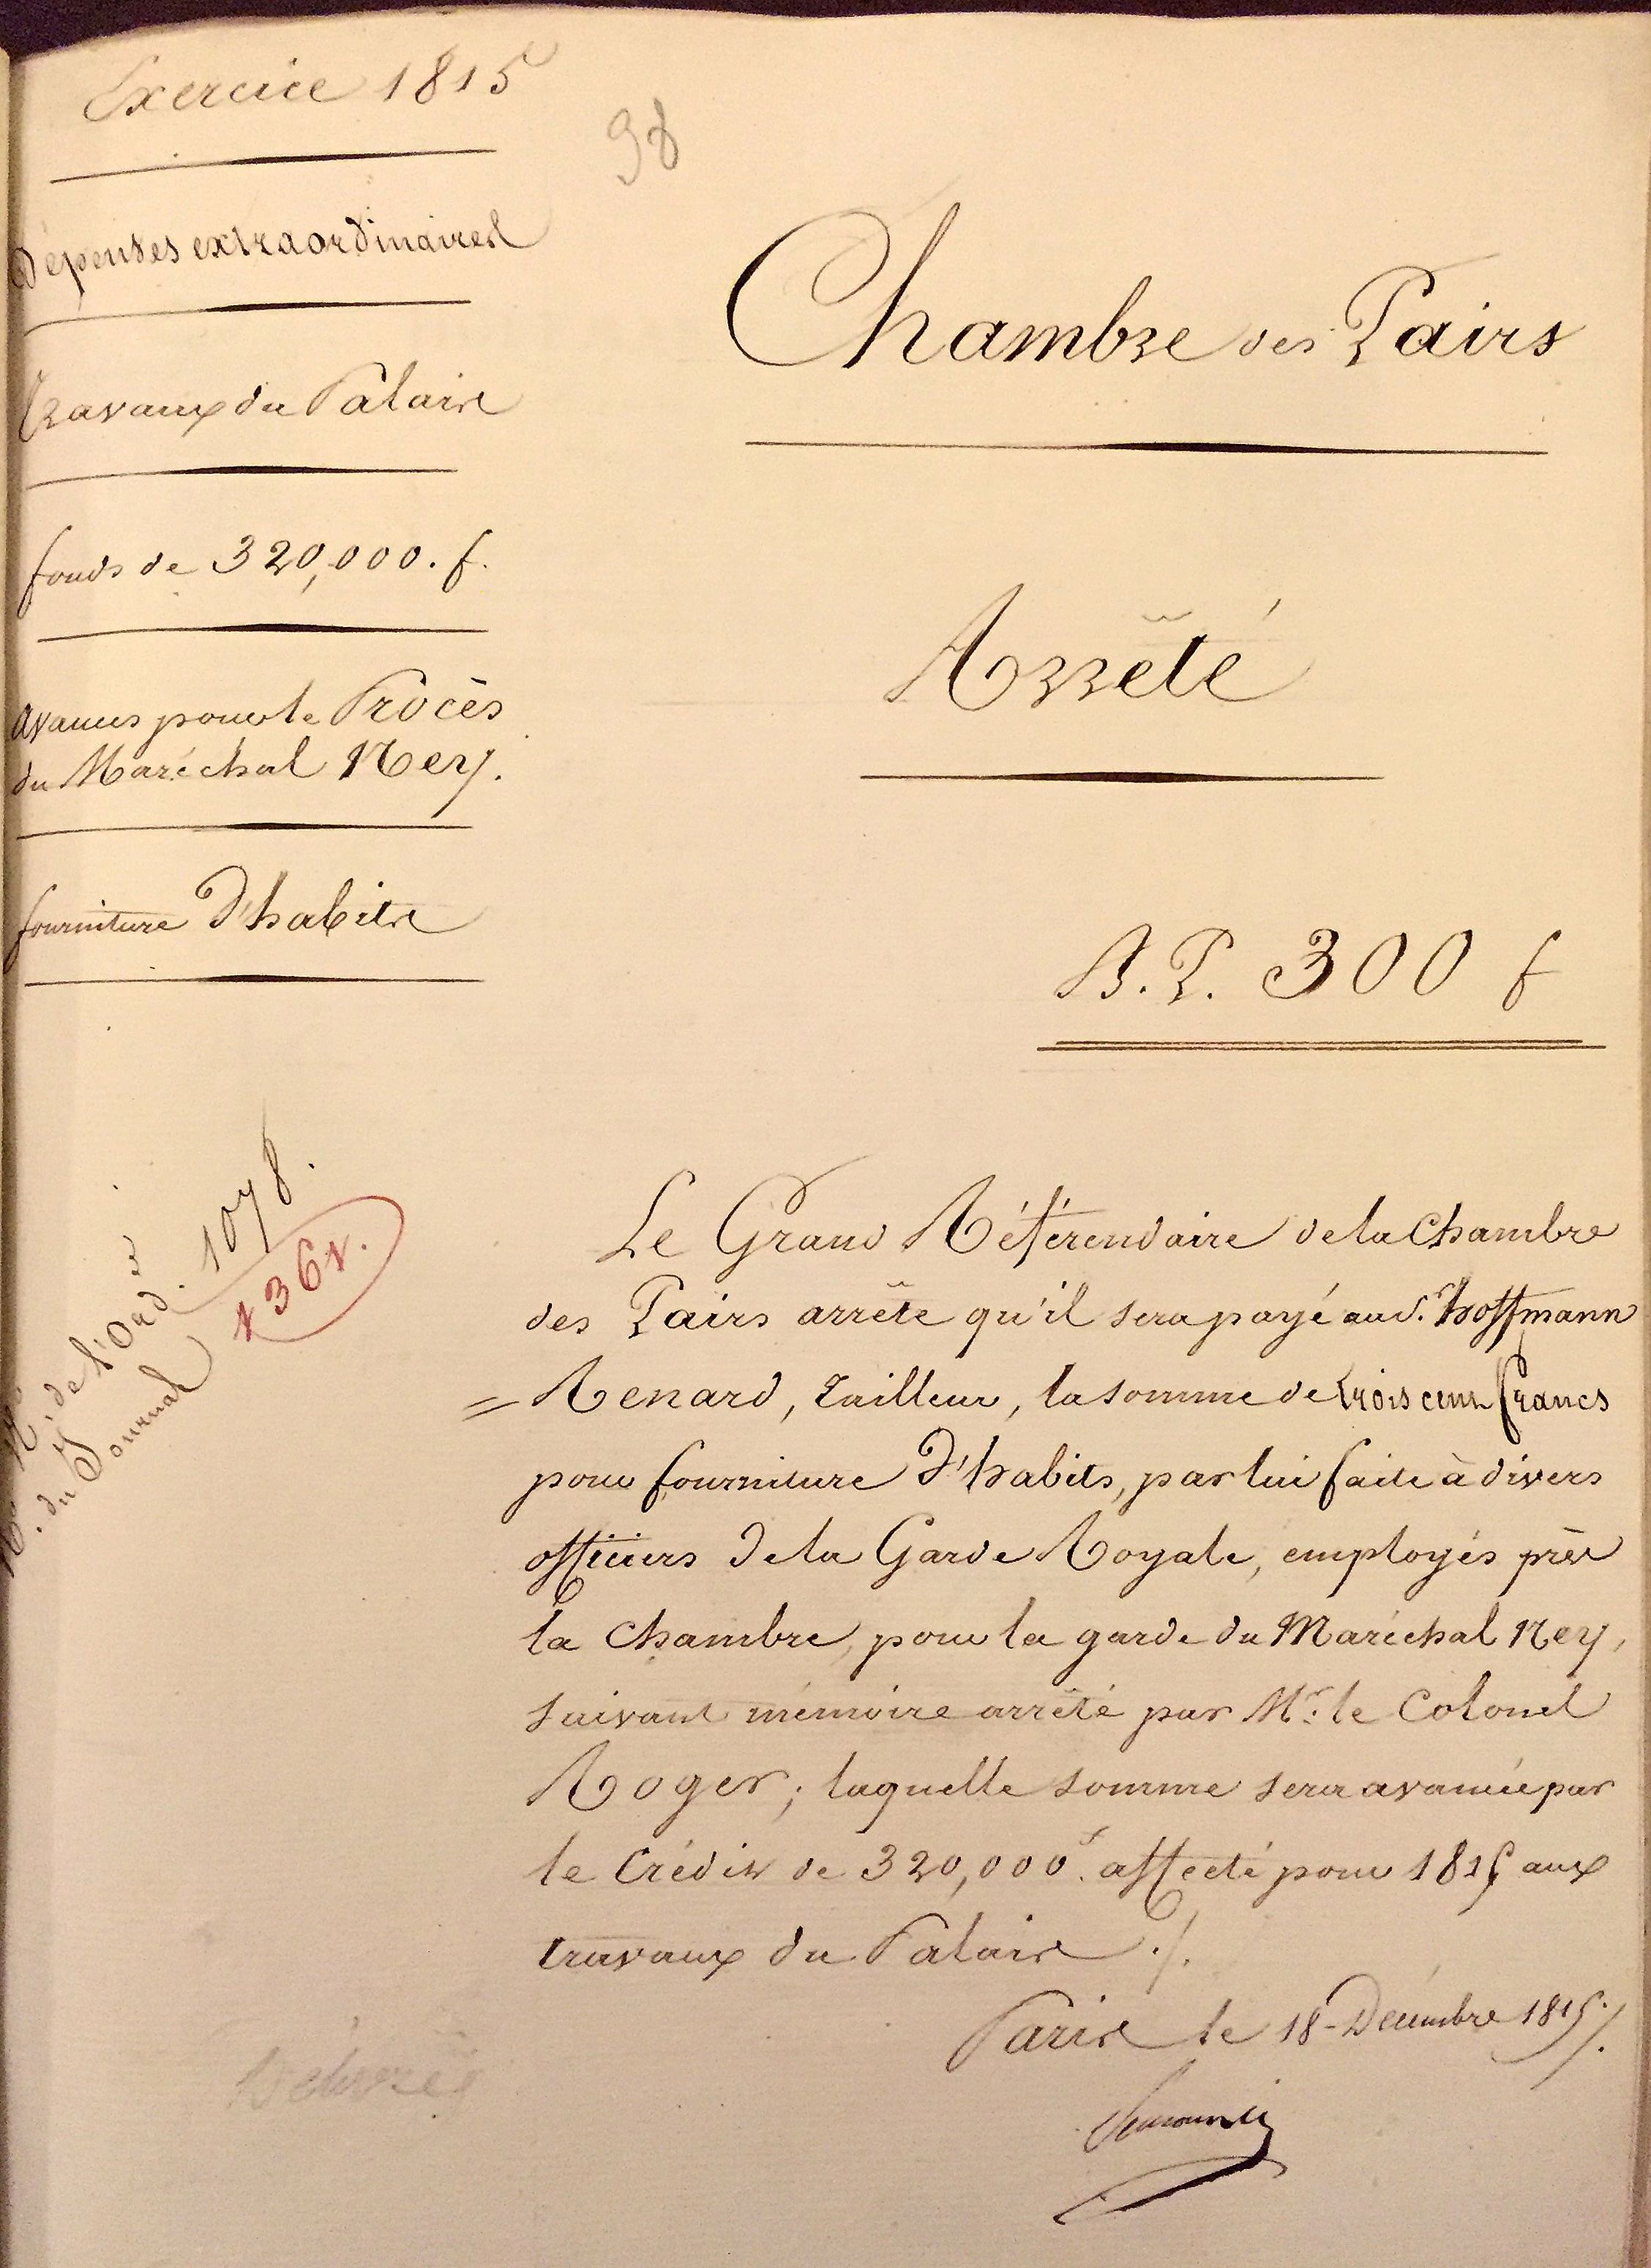 Exercice 1815
98
Dépenses extraordinaires
Travaux du Palais
fonds de 320,000. f.
avances pour le Procès
du Maréchal Ney.
fourniture d'habits
Chambre des Pairs
Arrêté
B.P. 300 f
No. de l'Ord. 1078.
No. du Journal
Le Grand Référendaire de la Chambre
des Pairs arrête qu'il sera payé au S. hoffmann
= Renard, tailleur, la somme de trois cent francs
pour fourniture d'habits, par lui faite à divers
officiers de la Garde Royale, employés près
la Chambre, pour la garde du Maréchal Ney,
suivant mémoire arrêté par Mr. le Colonel
Roger; laquelle somme sera avancée par
le Crédit de 320,000f. affecté pour 1815 aux
travaux du Palais ./.
Paris le 18 Décembre 1815./.